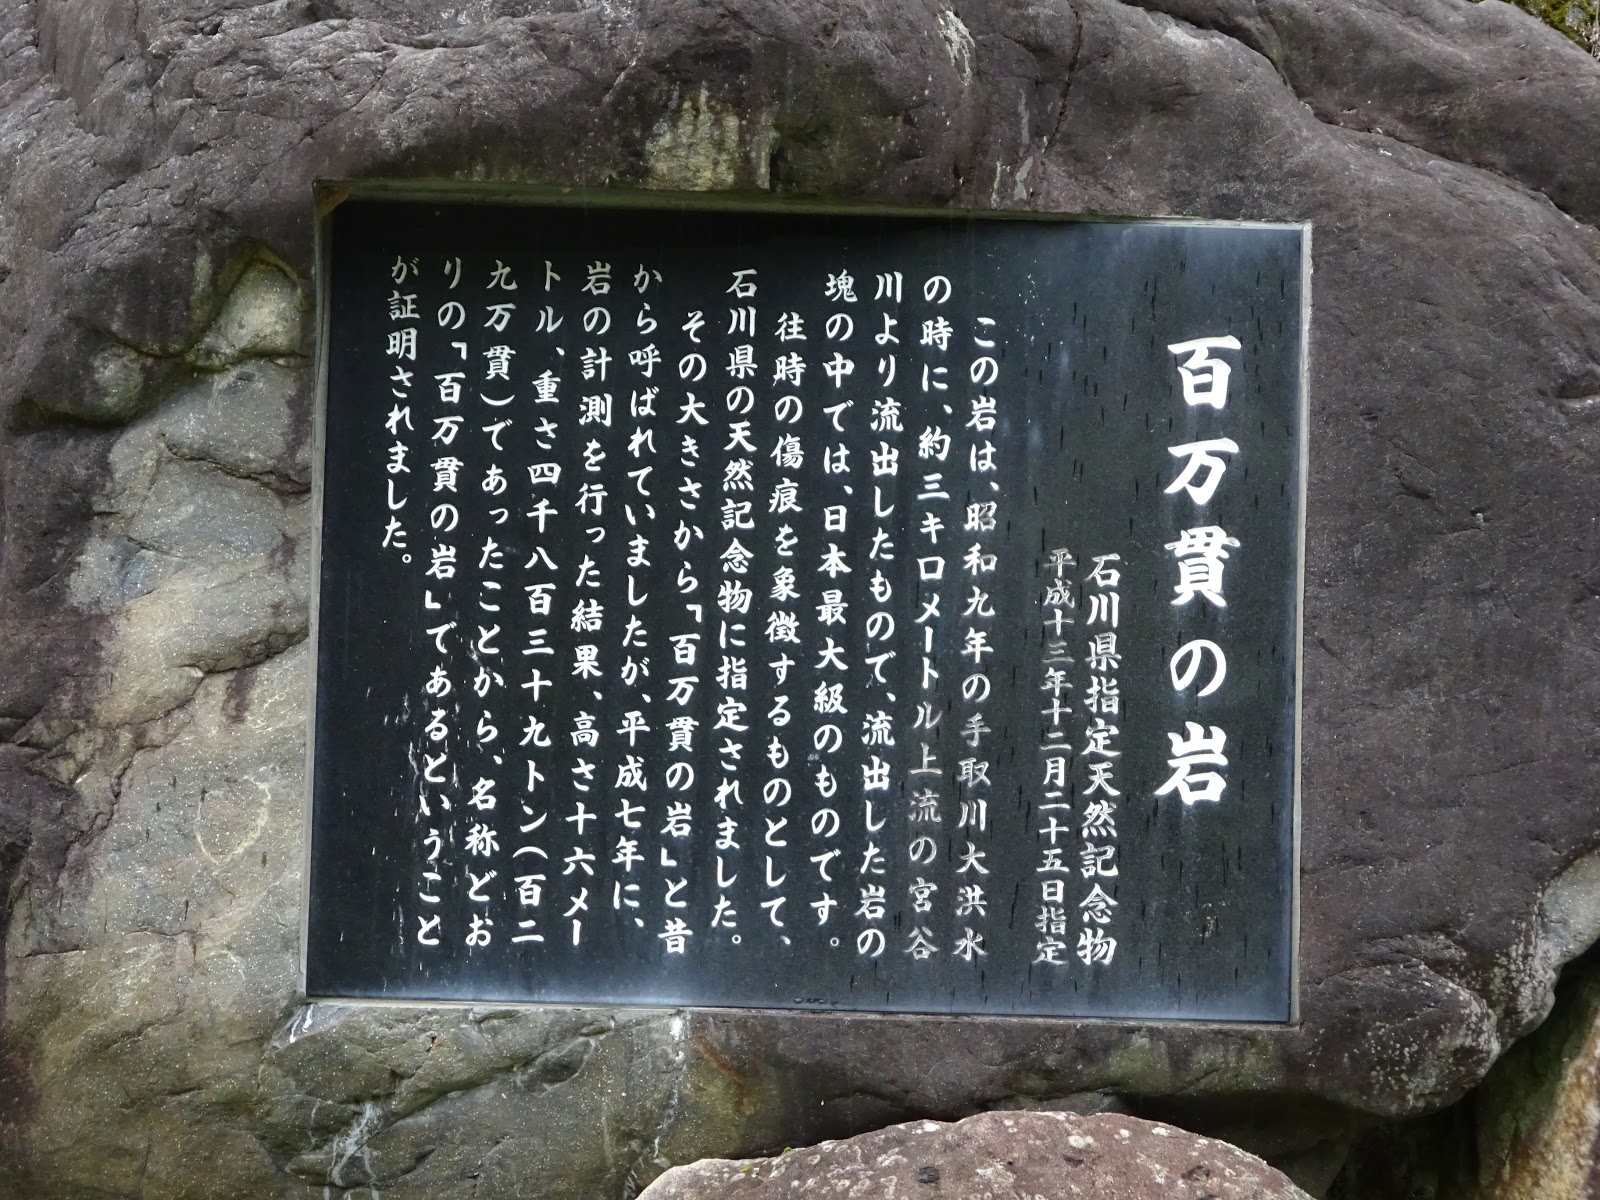 百万貫の岩
石川県指定天然記念物
平成十三年十二月二十五日指定
この岩は、昭和九年の手取川大洪水
の時に、約三キロメートル上流の宮谷
川より流出したもので、流出した岩の
塊の中では、日本最大級のものです。
往時の傷痕を象徴するものとして、
石川県の天然記念物に指定されました。
その大きさから「百万貫の岩」と昔
から呼ばれていましたが、平成七年に、
岩の計測を行った結果、高さ十六メー
トル、重さ四千八百三十九トン(百二
九万貫)であったことから、名称どお
りの「百万貫の岩」であるということ
が証明されました。